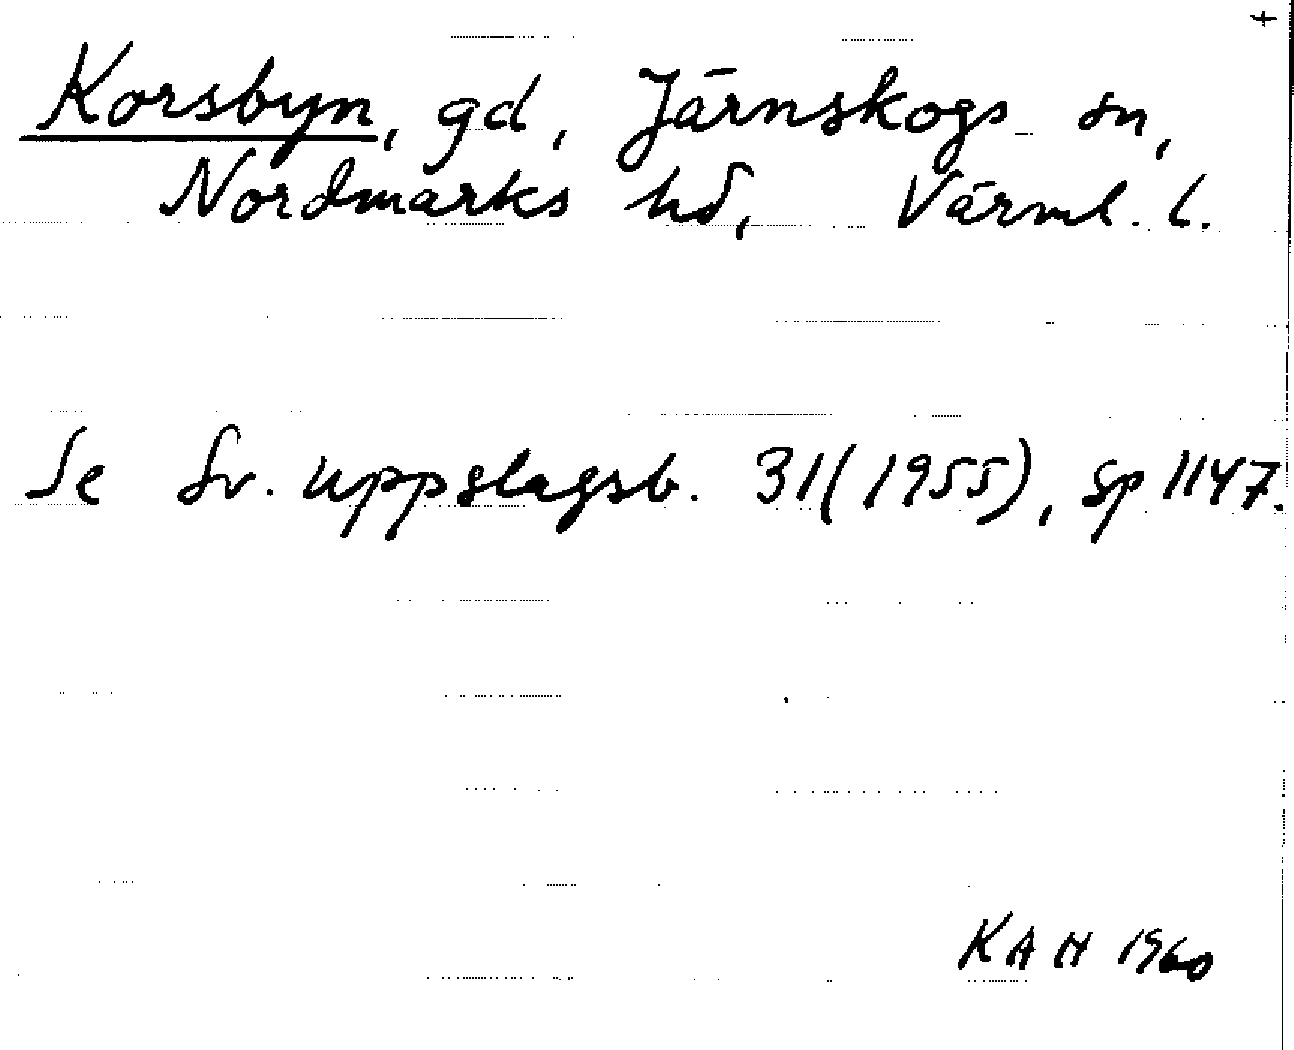 +
Korsbyn, gd, Järnskogs sn,
Nordmarks hd, Värml. l.
Se Sv. uppslagsb. 31 (1955), sp 1147.
KAH 1960